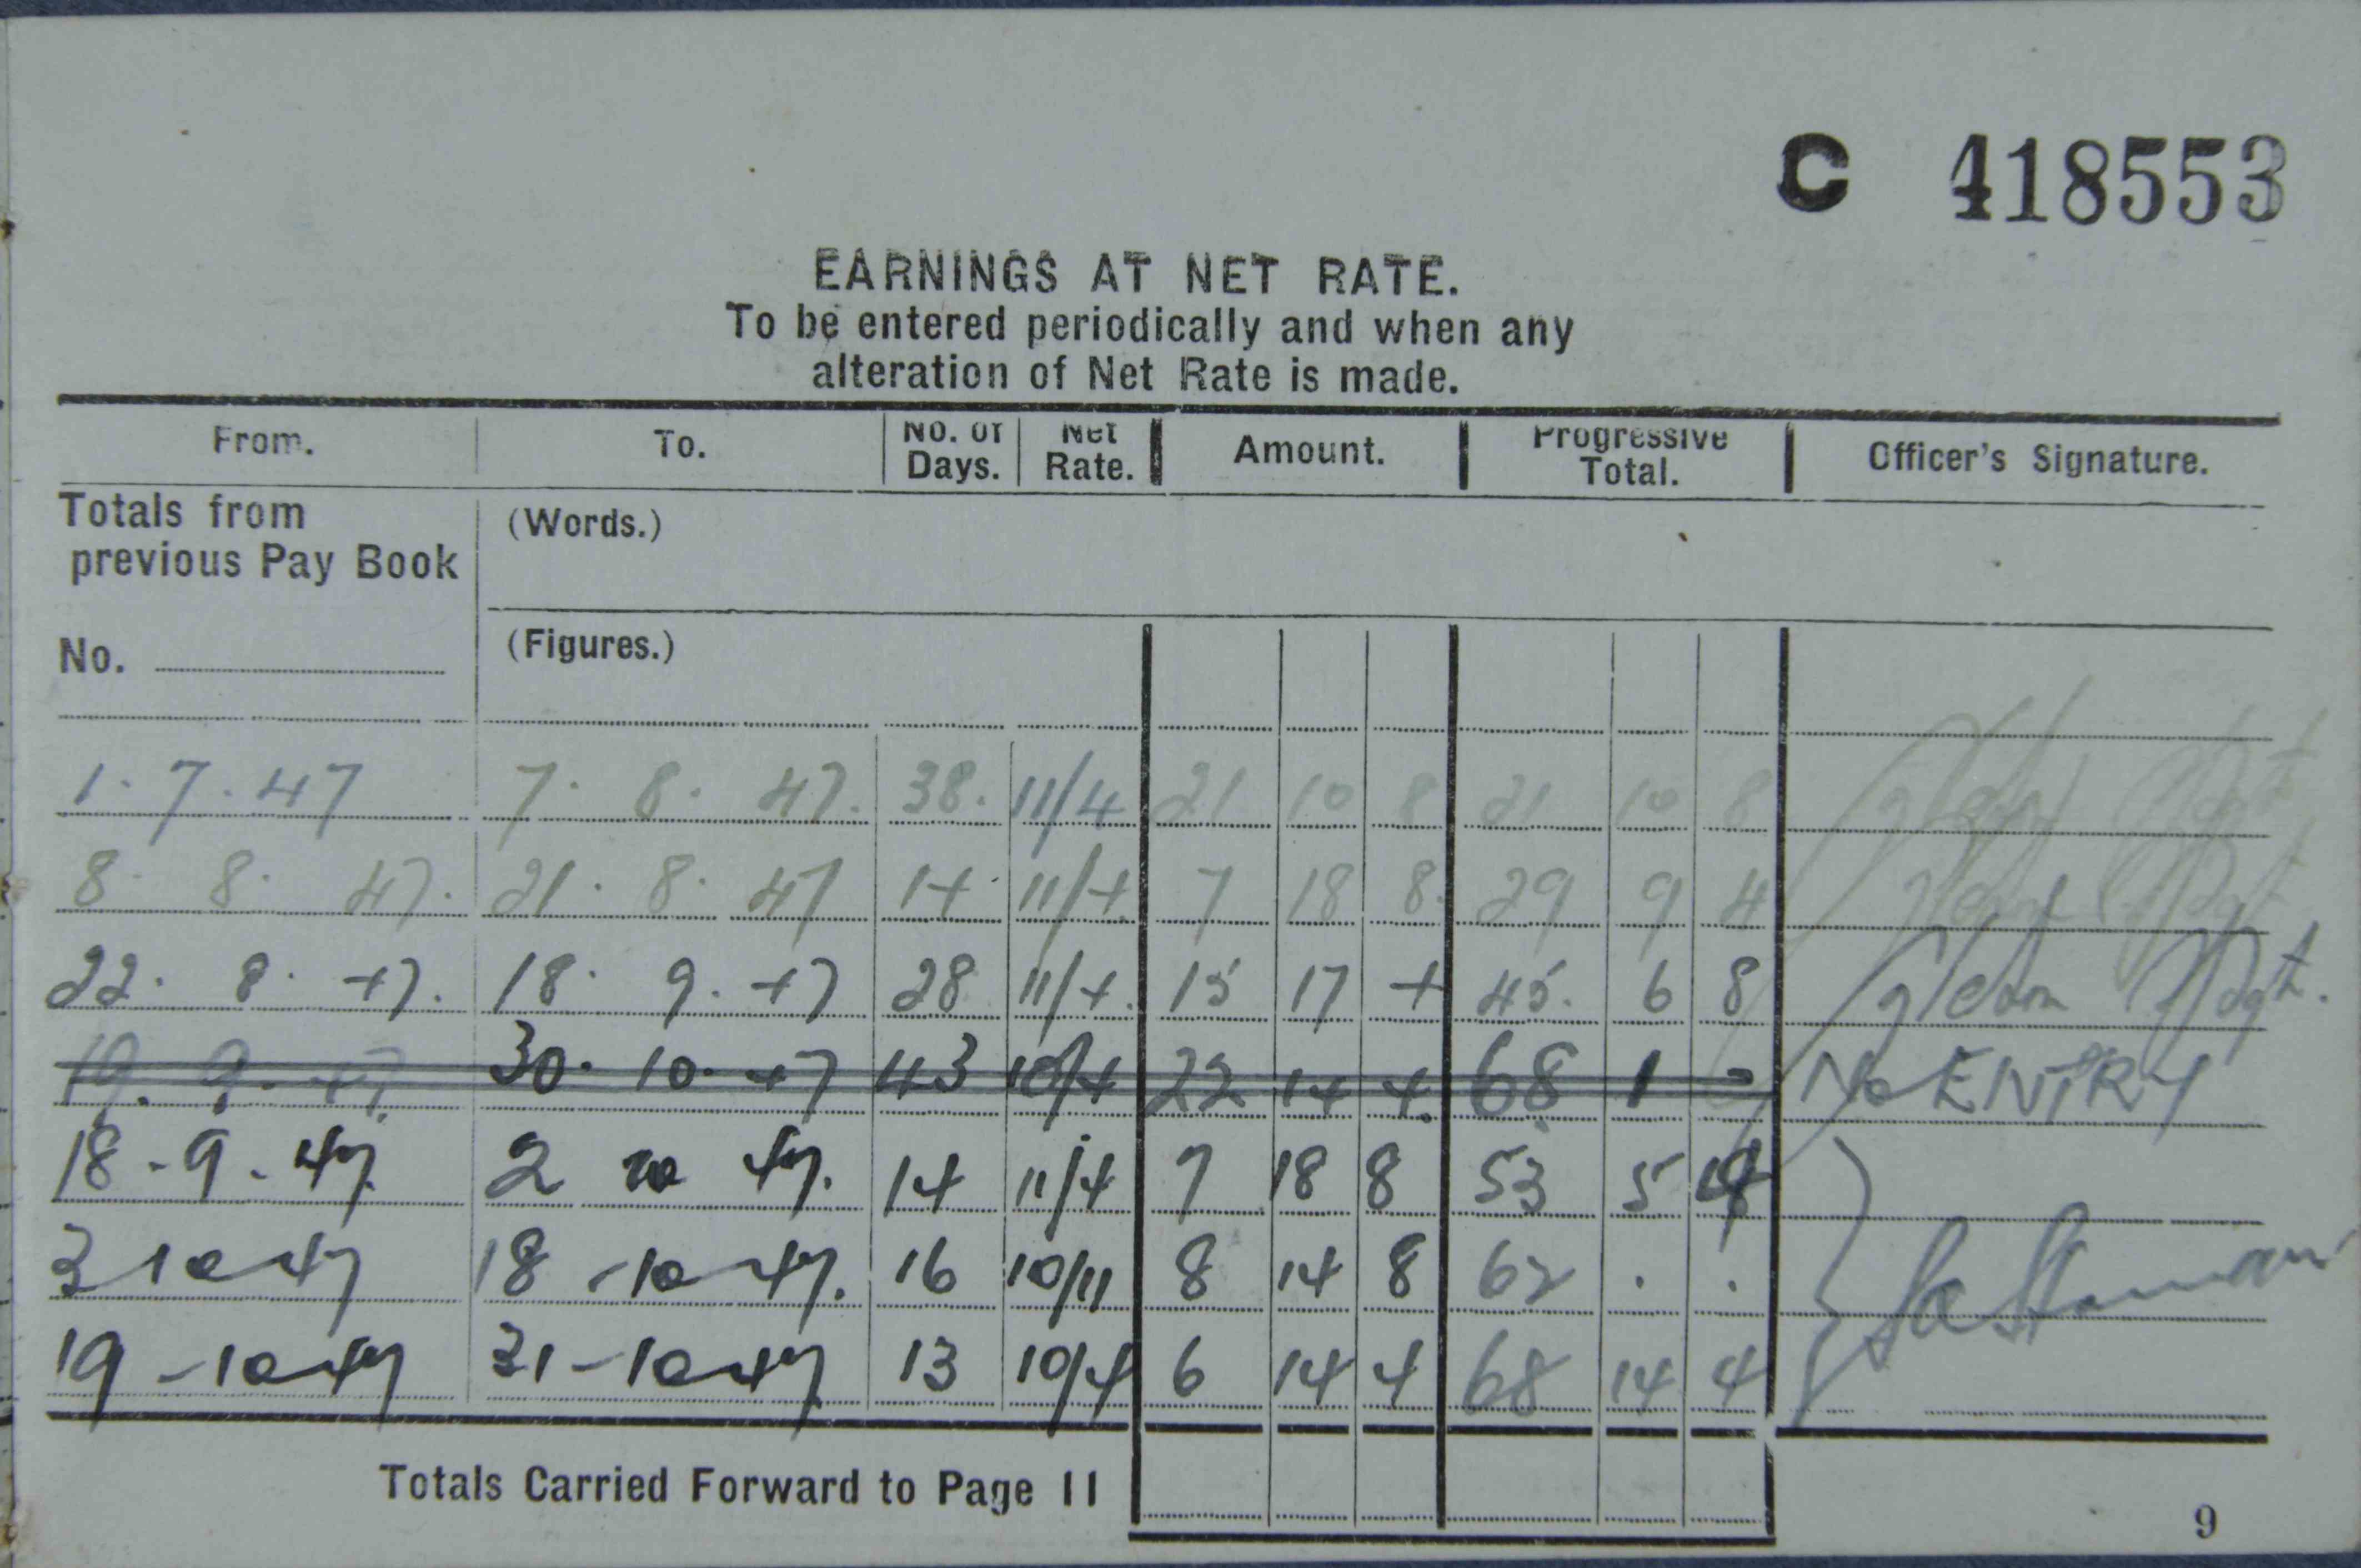 C 418553
EARNINGS AT NET RATE.
To be entered periodically and when any
alteration of Net Rate is made.
From. To. No. of Days. Net Rate. Amount. Progressive Total. Officer's Signature.
Totals from previous Pay Book (Words.)
No. (Figures.)
1. 7. 47 7. 8. 47. 38. 11/4 21 10 8 21 10 8
8. 8. 47. 21. 8. 47 14. 11/4. 7 18 8. 29 9 4
22. 8. 47. 18. 9. 47 28 11/4. 15 17 4 45. 6 8
19. 9. 47. 30. 10. 47 43 10/4 22 14 4. 68 1 0 No ENTRY
18-9-47 2 10 47. 14 11/4 7 18 8 53 5 4
3 10 47 18-10-47. 16 10/11 8 14 8 62 . .
19-10-47 31-10-47 13 10/4 6 14 4 68 14 4
Totals Carried Forward to Page 11
9